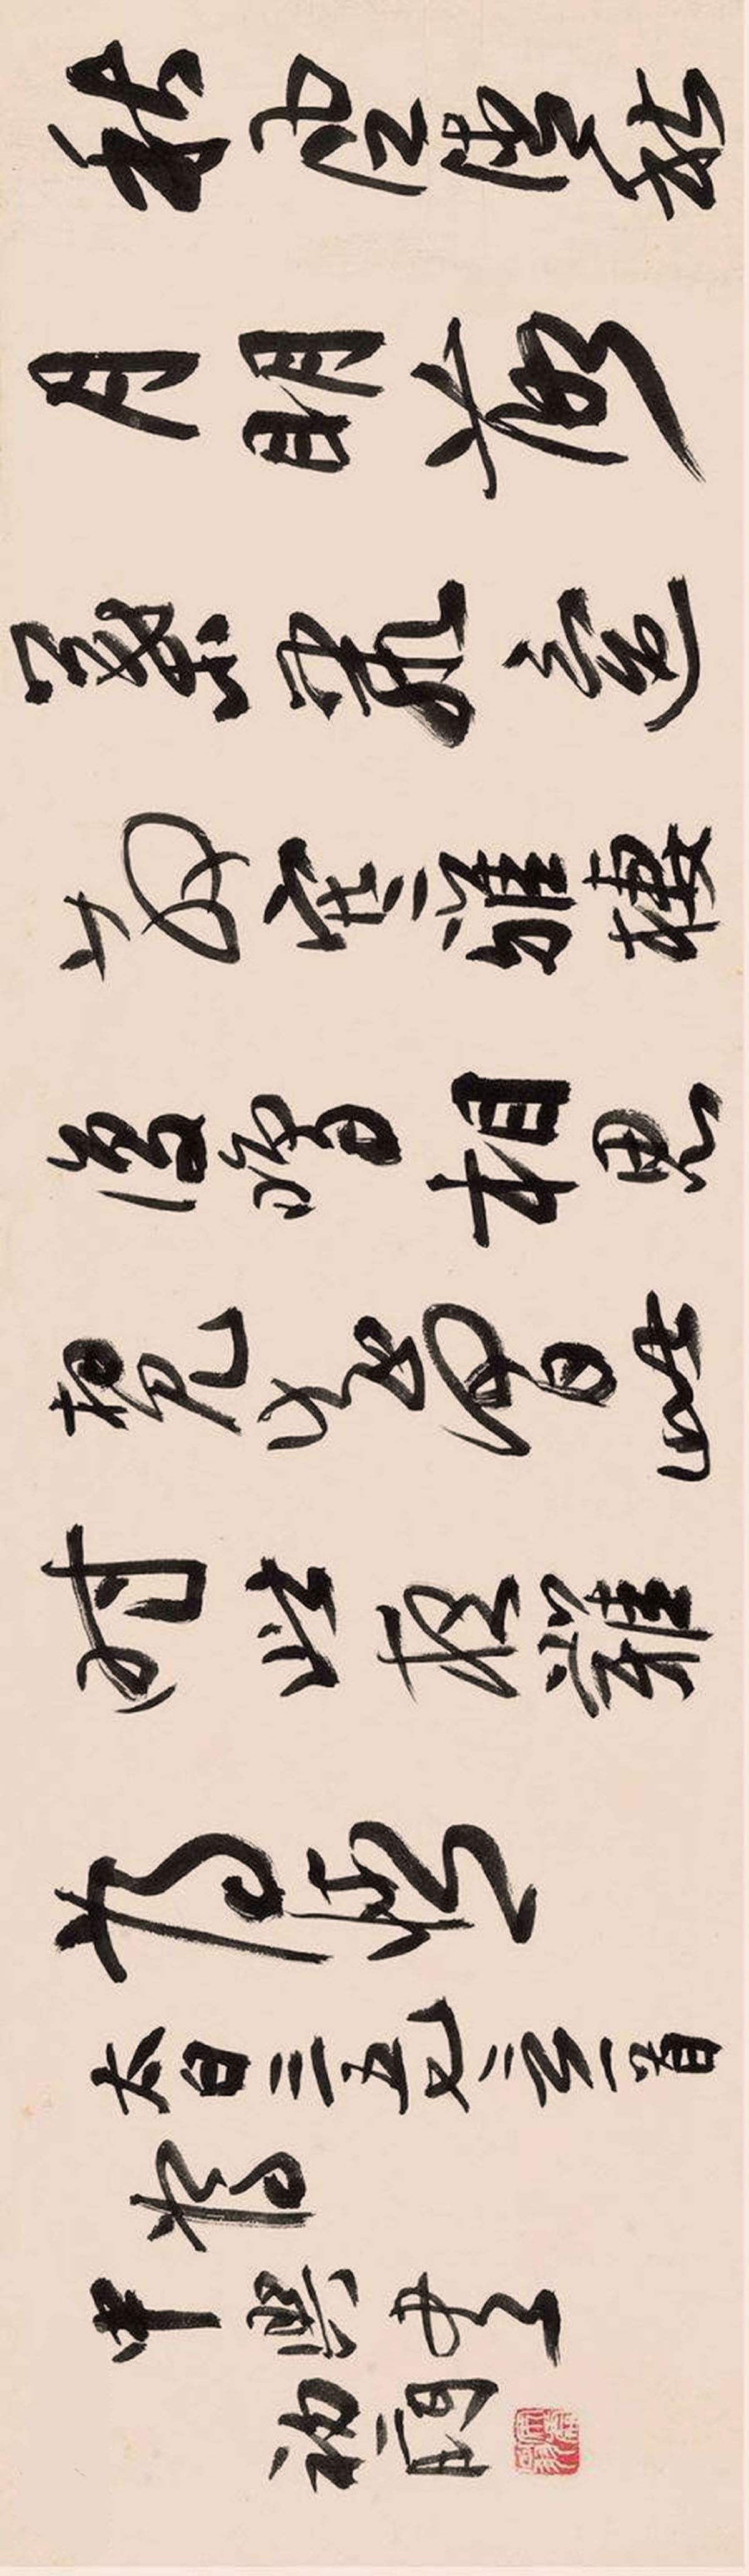 秋風清秋
月明落
葉聚還
散寒鴉棲
復驚相思
相見知何日此
時此夜難
為情
太白三五七言一首
為
中